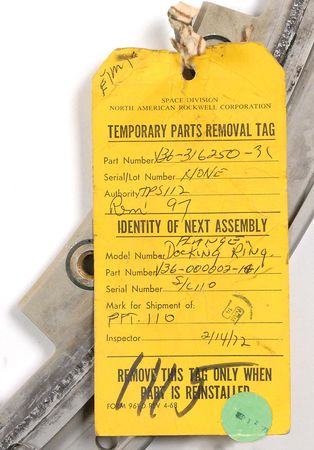 SPACE DIVISION
NORTH AMERICAN ROCKWELL CORPORATION
TEMPORARY PARTS REMOVAL TAG
Part Number V36-316250-31
Serial/Lot Number NONE
Authority TPS112
Rem 97
IDENTITY OF NEXT ASSEMBLY
FLANGE
Model Number DOCKING RING
Part Number V36-000002-
Serial Number S/C 110
Mark for Shipment of:
PPT. 110
Inspector 2/14/72
REMOVE THIS TAG ONLY WHEN
PART IS REINSTALLED
FORM 969-D REV 4-68